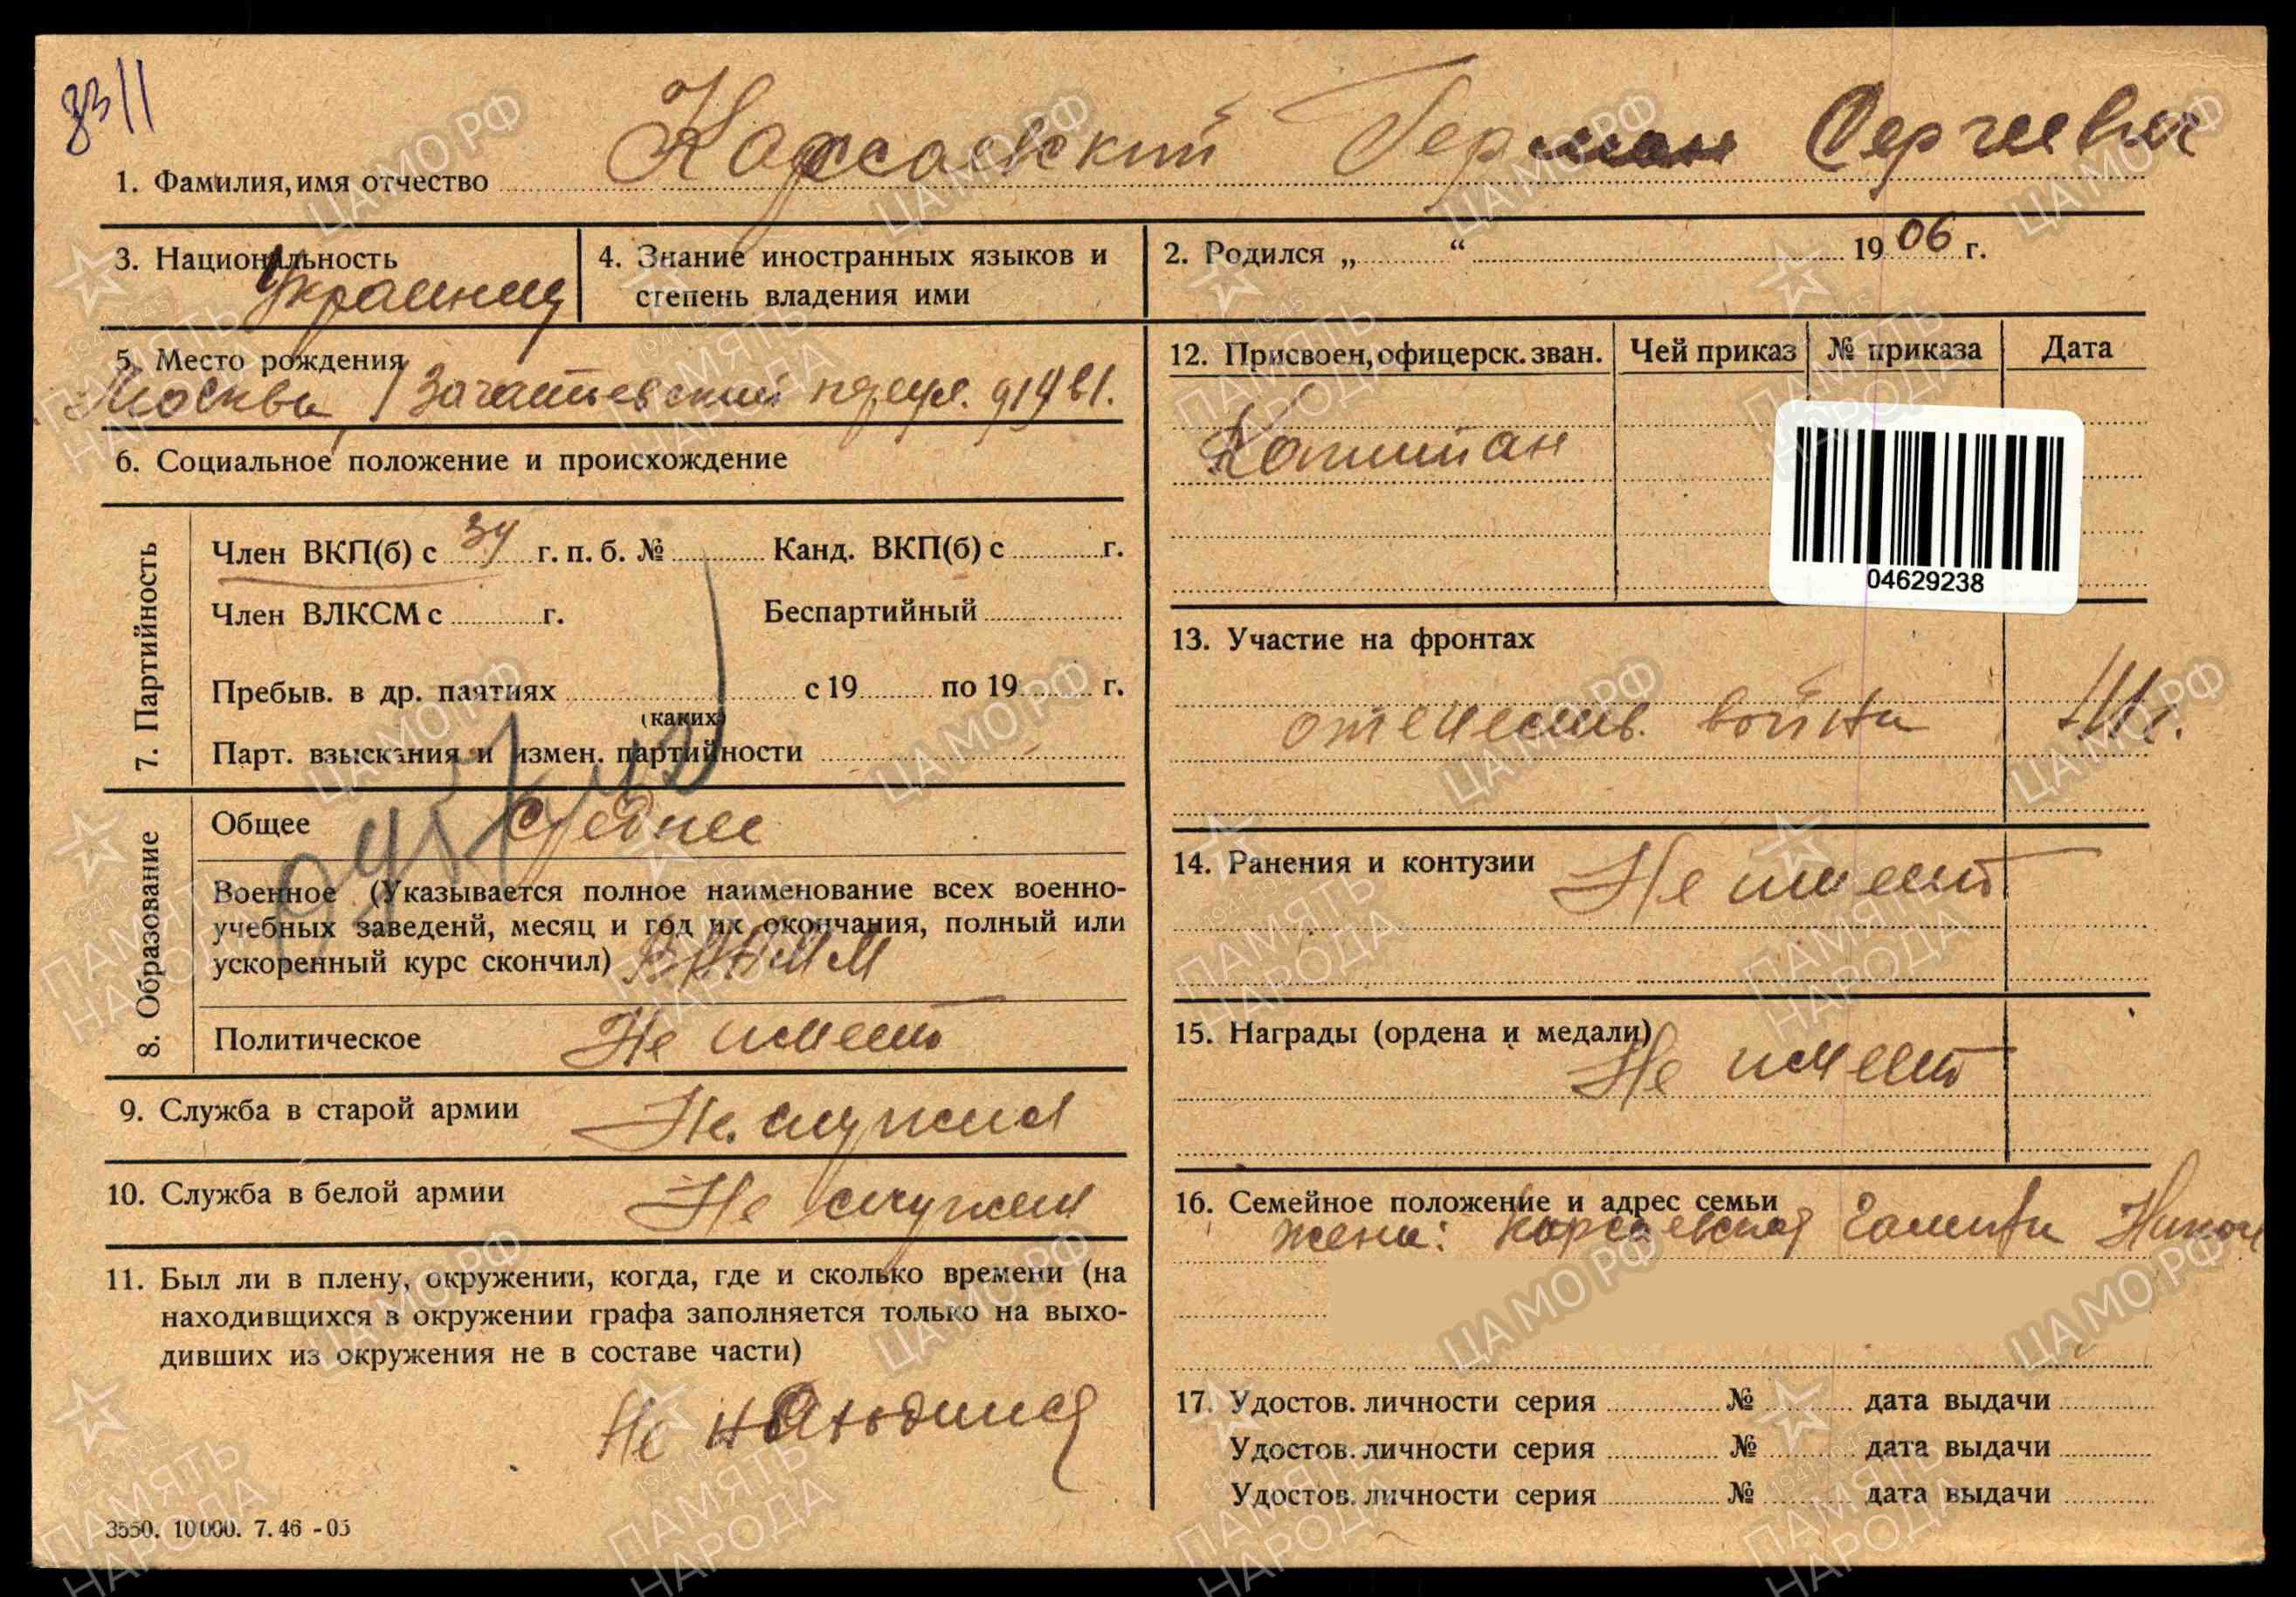 3311
1. Фамилия, имя отчество Карсаевский Герман Сергеевич
3. Национальность Украинец
4. Знание иностранных языков и
степень владения ими
2. Родился „ “ 1906 г.
5. Место рождения
Москва, 1 Зачатьевский переул.
6. Социальное положение и происхождение
7. Партийность
Член ВКП(б) с 39 г. п. б. № Канд. ВКП(б) с г.
Член ВЛКСМ с г. Беспартийный
Пребыв. в др. партиях с 19 по 19 г.
(каких)
Парт. взыскания и измен. партийности
8. Образование
Общее среднее
Военное (Указывается полное наименование всех военно-
учебных заведений, месяц и год их окончания, полный или
ускоренный курс скончил)
Политическое Не имеет
9. Служба в старой армии Не служил
10. Служба в белой армии Не служил
11. Был ли в плену, окружении, когда, где и сколько времени (на
находившихся в окружении графа заполняется только на выхо-
дивших из окружения не в составе части)
Не находился
3550. 10000. 7. 46 - 05
12. Присвоен, офицерск. зван. Чей приказ № приказа Дата
Капитан
04629238
13. Участие на фронтах
отечеств. война 41г.
14. Ранения и контузии Не имеет
15. Награды (ордена и медали) Не имеет
16. Семейное положение и адрес семьи
жена: Карсаевская Галина Никол
17. Удостов. личности серия № дата выдачи
Удостов. личности серия № дата выдачи
Удостов. личности серия № дата выдачи
ЦАМО РФ
1941-1945
ПАМЯТЬ
НАРОДА